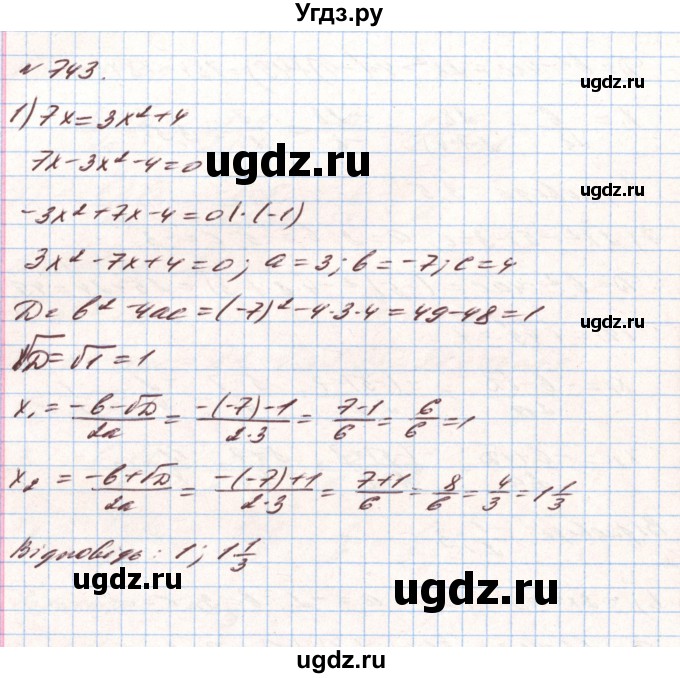 Угдз.ру
№ 743.
ugdz.ru
1) 7x = 3x² + 4
7x - 3x² - 4 = 0
ugdz.ru
ugdz.ru
-3x² + 7x - 4 = 0 | · (-1)
3x² - 7x + 4 = 0; a = 3; b = -7; c = 4
D = b² - 4ac = (-7)² - 4·3·4 = 49 - 48 = 1
ugdz.ru
√D = √1 = 1
x₁ = (-b - √D)/(2a) = (-(-7) - 1)/(2·3) = (7 - 1)/6 = 6/6 = 1
x₂ = (-b + √D)/(2a) = (-(-7) + 1)/(2·3) = (7 + 1)/6 = 8/6 = 4/3 = 1 1/3
Відповідь: 1; 1 1/3
ugdz.ru
ugdz.ru
ugdz.ru
ugdz.ru